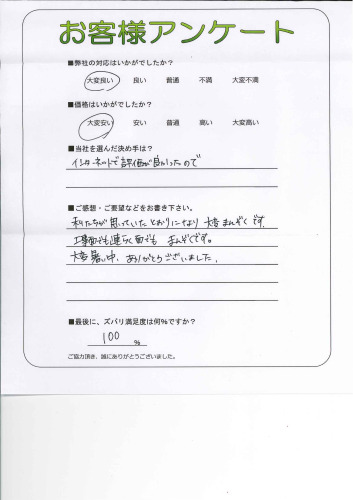 お客様アンケート
■弊社の対応はいかがでしたか?
大変良い 良い 普通 不満 大変不満
■価格はいかがでしたか?
大変安い 安い 普通 高い 大変高い
■当社を選んだ決め手は?
インターネットで評価が良かったので
■ご感想・ご要望などをお書き下さい。
私たちが思っていたとおりになり 大変まんぞくです。
工事面でも連らく面でも まんぞくです。
大変暑い中、ありがとうございました。
■最後に、ズバリ満足度は何%ですか?
100 %
ご協力頂き、誠にありがとうございました。